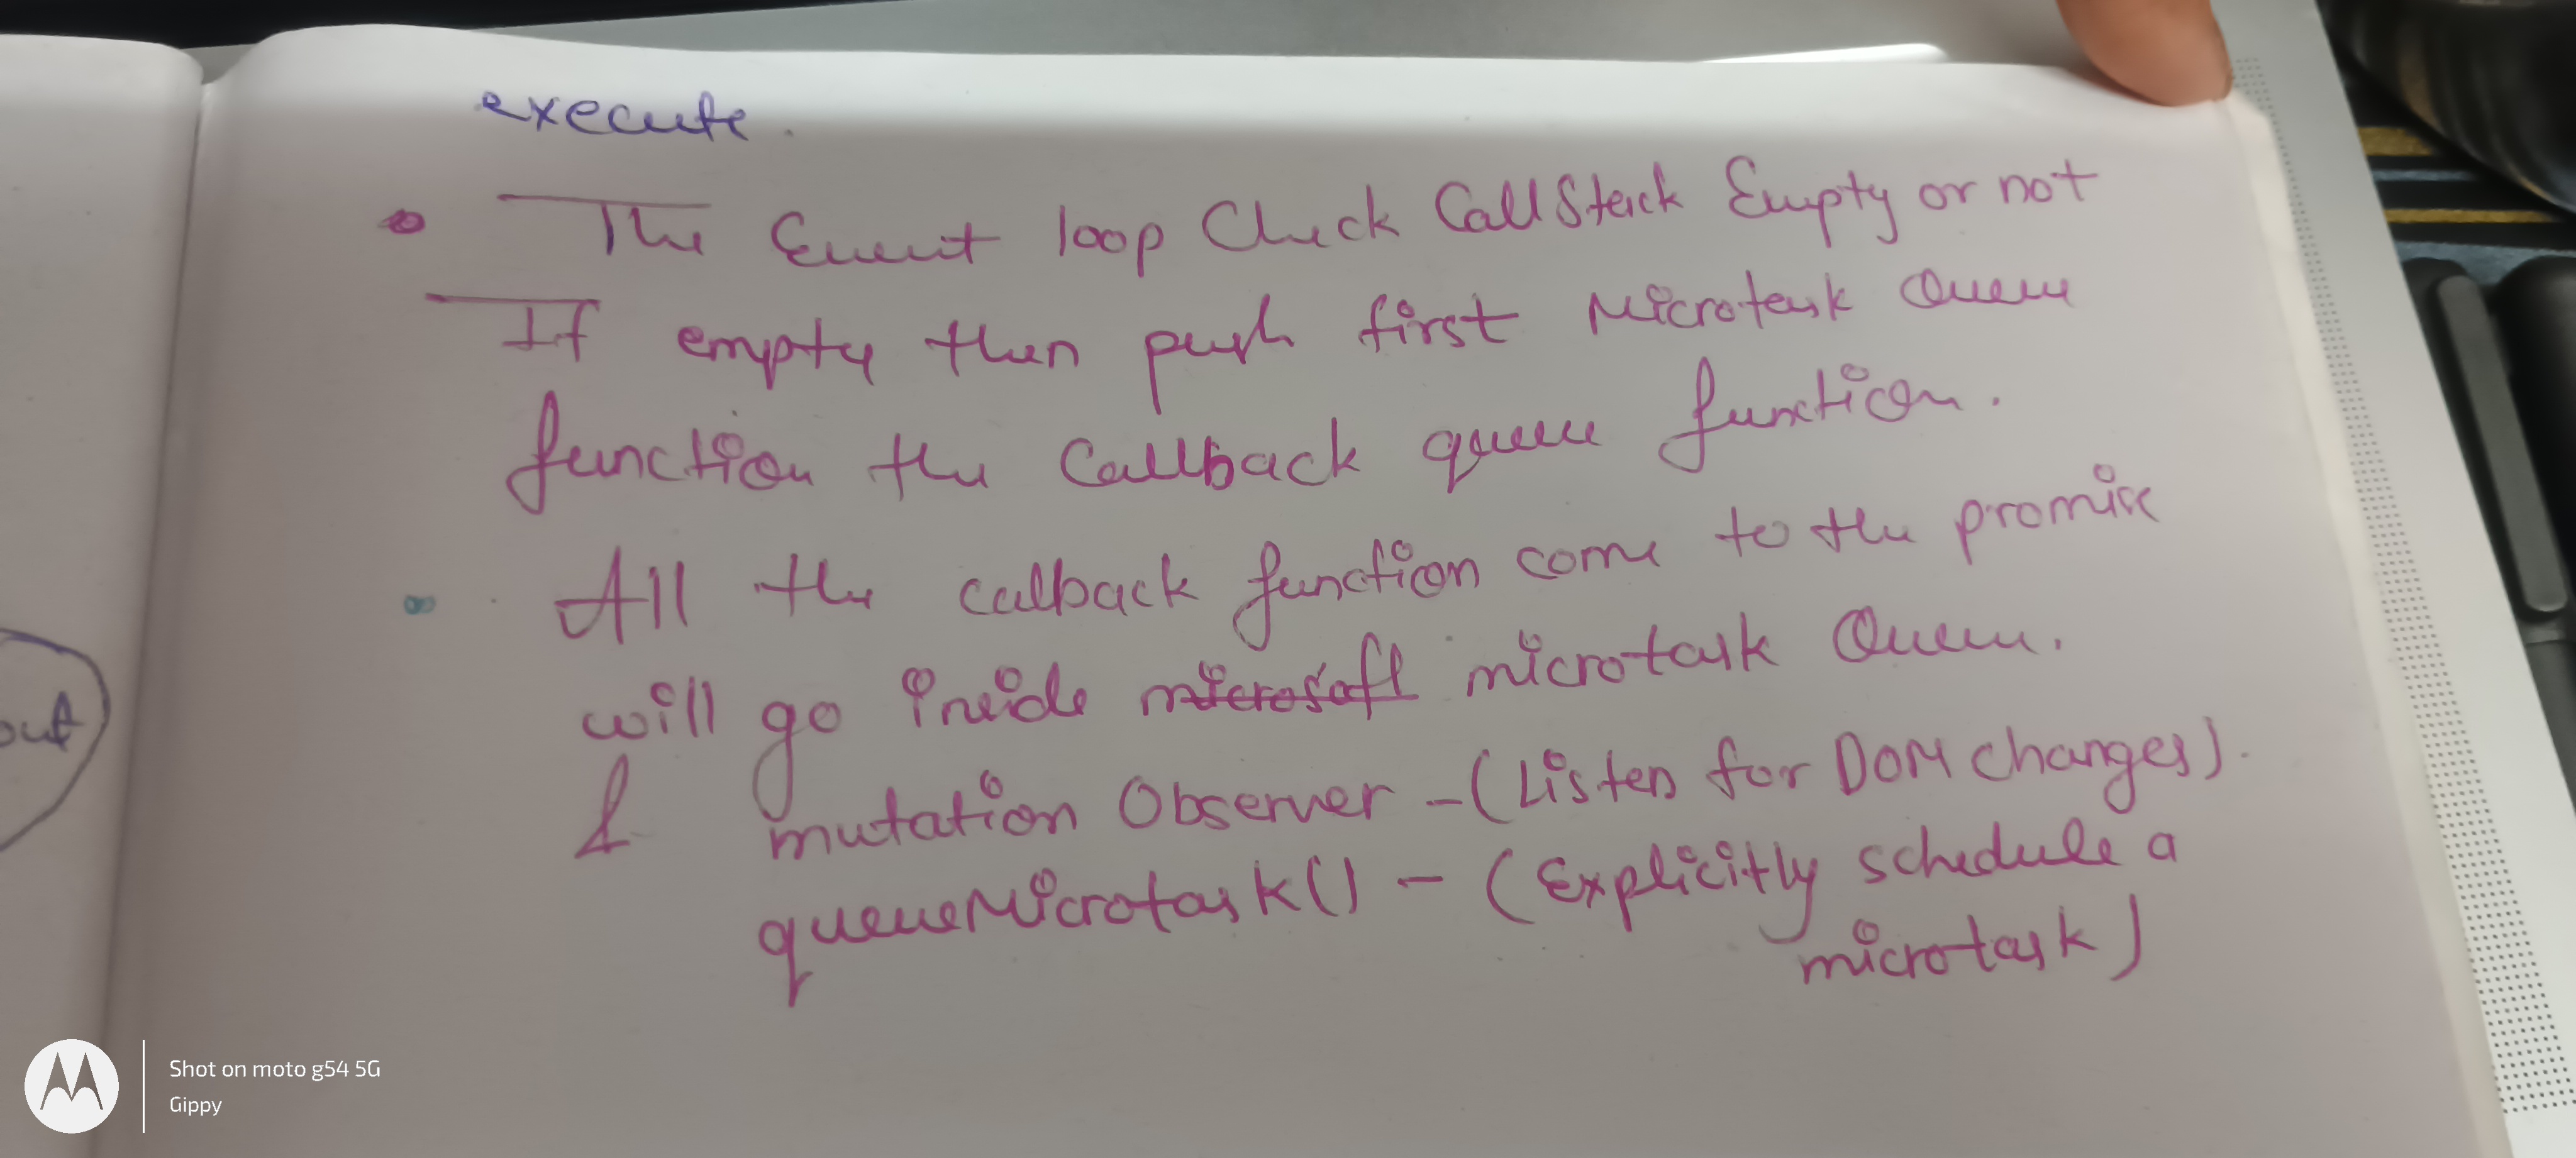 execute.
The Event loop Check Call Stack Empty or not
If empty then push first Microtask Queue
function the Callback queue function.
All the callback function come to the promise
will go inside microsoft microtask Queue.
& mutation Observer - (Listen for DOM changes).
queueMicrotask() - (Explicitly schedule a
microtask)
out
Shot on moto g54 5G
Gippy